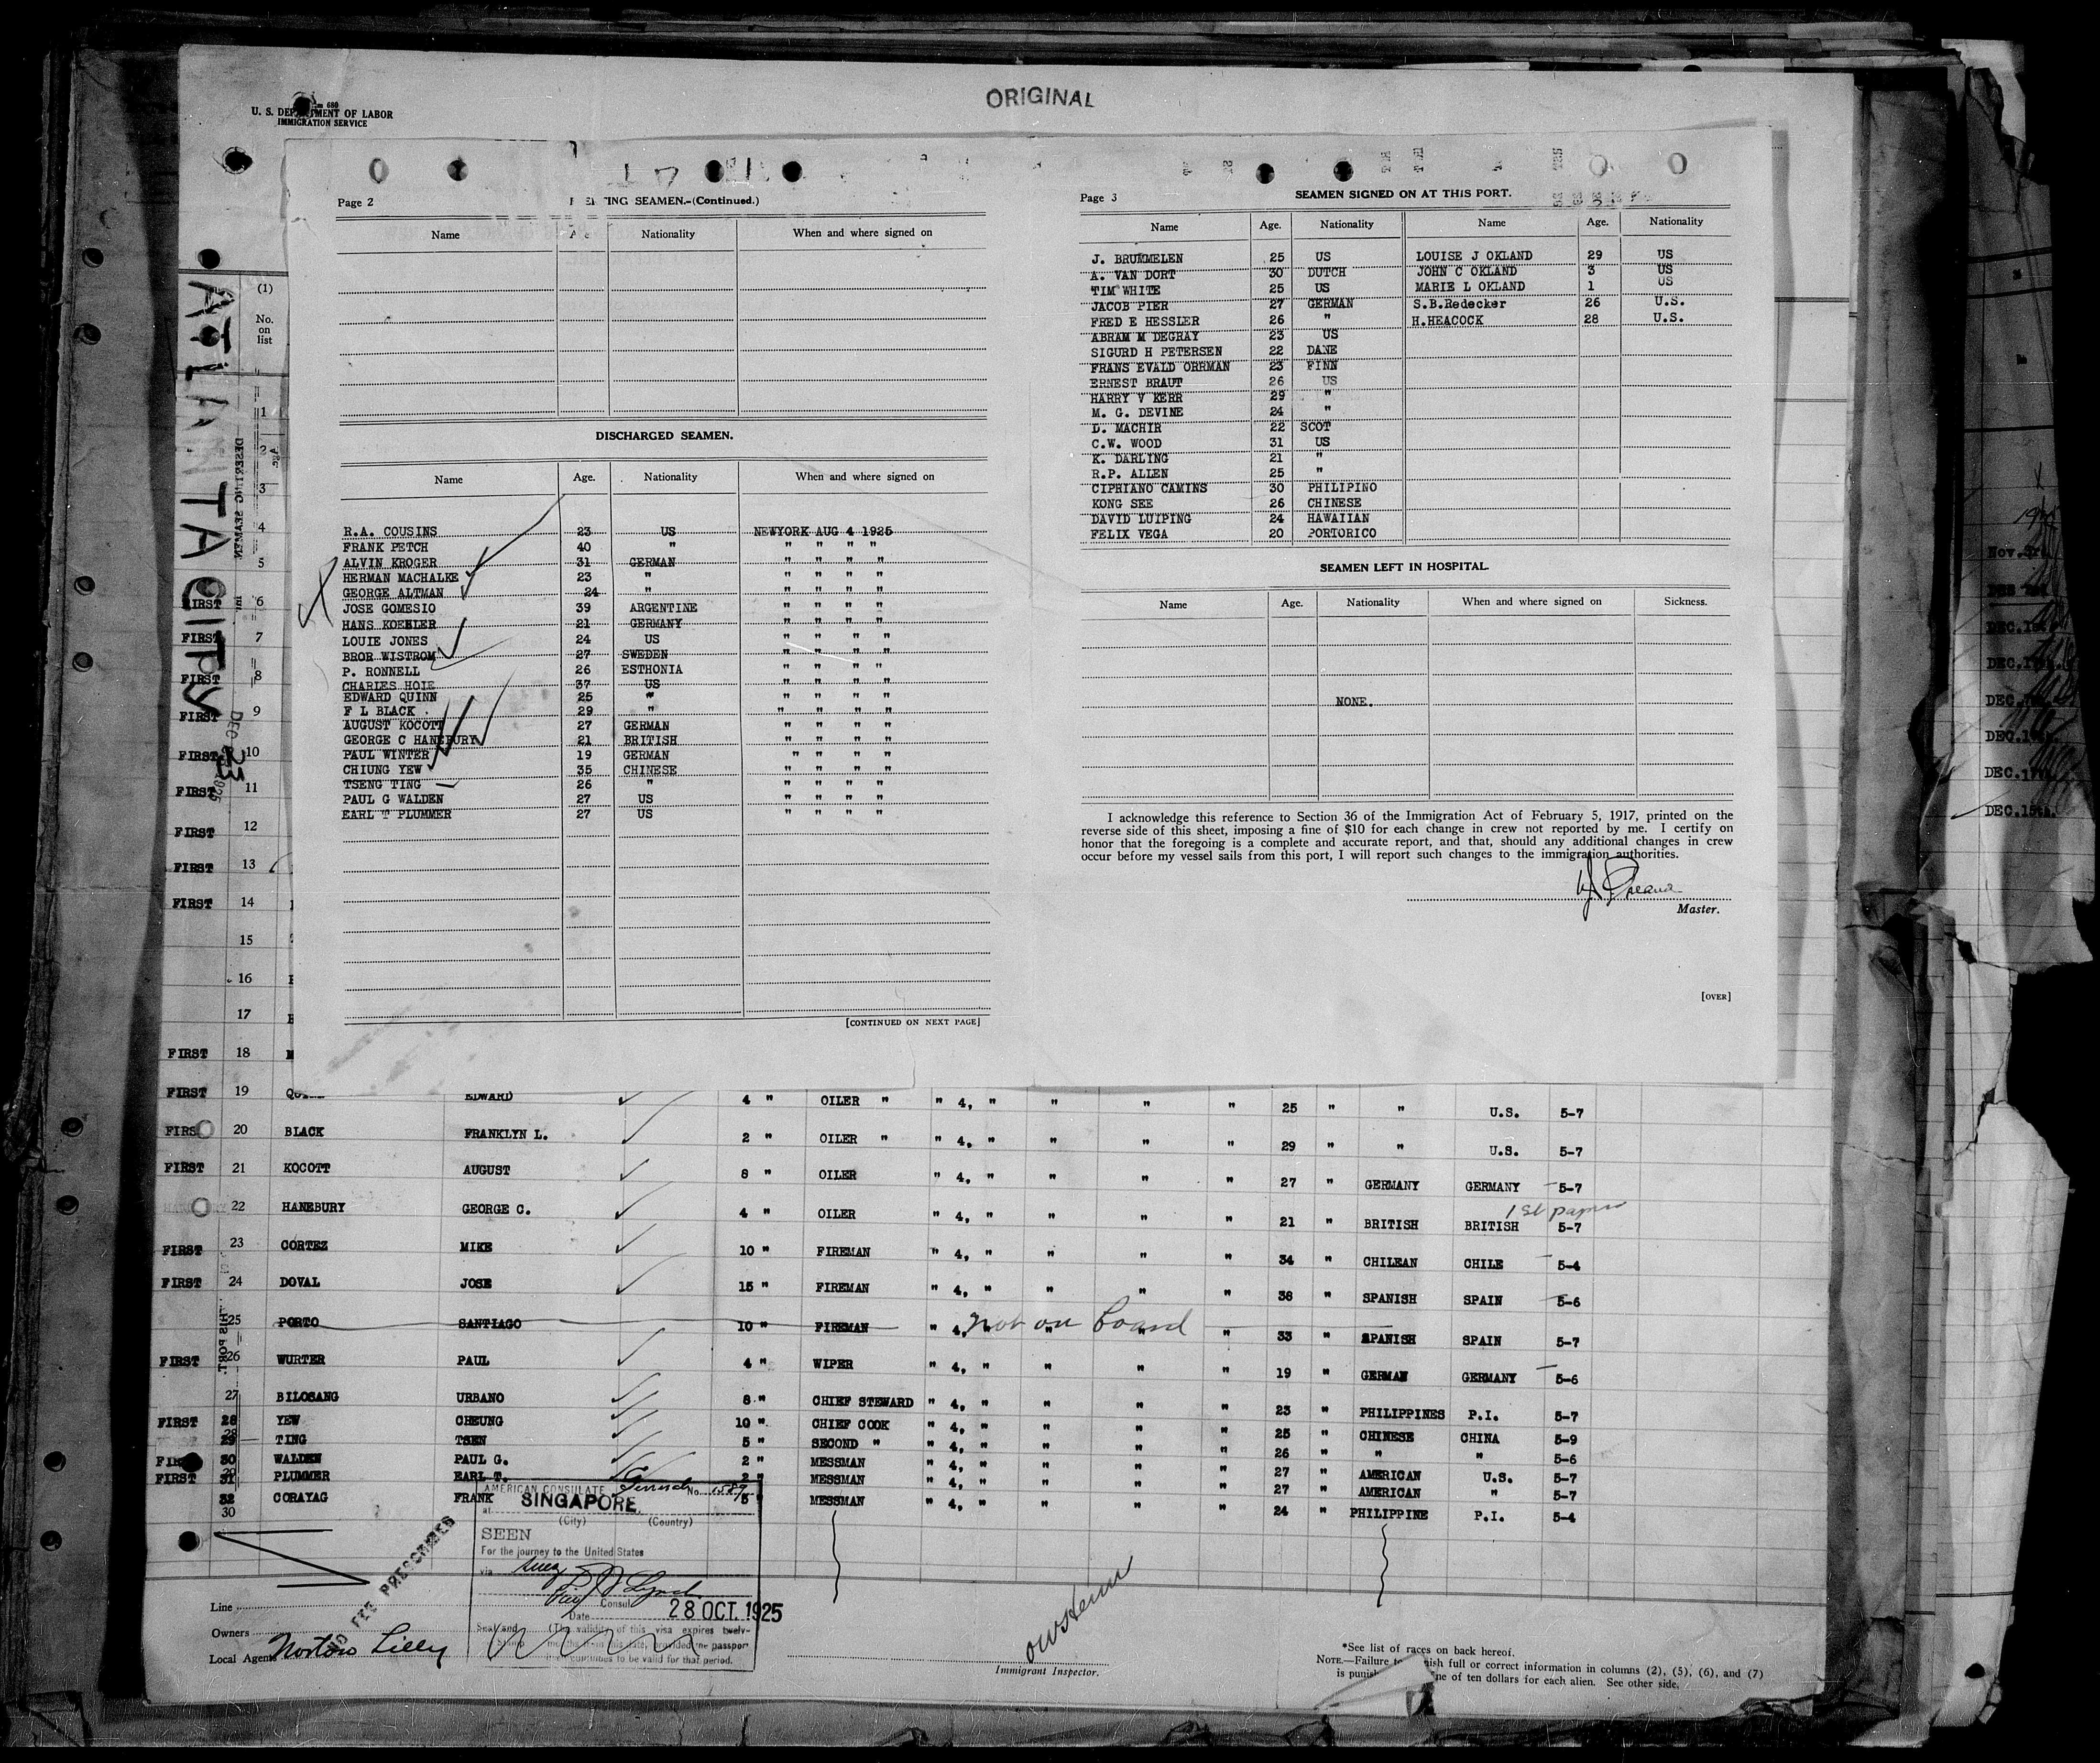 ORIGINAL
680
U. S. DEPARTMENT OF LABOR
IMMIGRATION SERVICE
ATLANTA CITY
(1)
No.
on
list
Page 2
SEAMEN.-(Continued.)
Name Nationality When and where signed on
DISCHARGED SEAMEN.
Name Age. Nationality When and where signed on
R.A. COUSINS 23 US NEWYORK AUG 4 1925
FRANK PETCH 40 " " " " "
ALVIN KROGER 31 GERMAN " " " "
HERMAN MACHALKE 23 " " " " "
GEORGE ALTMAN 24 " " " " "
JOSE GOMESIO 39 ARGENTINE " " " "
HANS KOEHLER 21 GERMANY " " " "
LOUIE JONES 24 US " " " "
BROR WISTROM 27 SWEDEN " " " "
P. RONNELL 26 ESTHONIA " " " "
CHARLES HOIE 37 US " " " "
EDWARD QUINN 25 " " " " "
F L BLACK 29 " " " " "
AUGUST KOCOTT 27 GERMAN " " " "
GEORGE C HANEBURY 21 BRITISH " " " "
PAUL WINTER 19 GERMAN " " " "
CHIUNG YEW 35 CHINESE " " " "
TSENG TING 26 " " " " "
PAUL G WALDEN 27 US " " " "
EARL T PLUMMER 27 US " " " "
[CONTINUED ON NEXT PAGE]
Page 3 SEAMEN SIGNED ON AT THIS PORT.
Name Age. Nationality Name Age. Nationality
J. BRUMMELEN 25 US LOUISE J OKLAND 29 US
A. VAN DORT 30 DUTCH JOHN C OKLAND 3 US
TIM WHITE 25 US MARIE L OKLAND 1 US
JACOB PIER 27 GERMAN S.B.Redecker 26 U.S.
FRED E HESSLER 26 " H.HEACOCK 28 U.S.
ABRAM M DEGRAY 23 US
SIGURD H PETERSEN 22 DANE
FRANS EVALD OHRMAN 23 FINN
ERNEST BRAUT 26 US
HARRY V KERR 29 "
M. G. DEVINE 24 "
D. MACHIR 22 SCOT
C.W. WOOD 31 US
K. DARLING 21 "
R.P. ALLEN 25 "
CIPHIANO CAMINS 30 PHILIPINO
KONG SEE 26 CHINESE
DAVID LUIPING 24 HAWAIIAN
FELIX VEGA 20 PORTORICO
SEAMEN LEFT IN HOSPITAL.
Name Age. Nationality When and where signed on Sickness.
NONE.
I acknowledge this reference to Section 36 of the Immigration Act of February 5, 1917, printed on the
reverse side of this sheet, imposing a fine of $10 for each change in crew not reported by me. I certify on
honor that the foregoing is a complete and accurate report, and that, should any additional changes in crew
occur before my vessel sails from this port, I will report such changes to the immigration authorities.
Master.
[OVER]
1
2
3
4
5
FIRST 6
FIRST 7
FIRST 8
FIRST 9
FIRST 10
FIRST 11
FIRST 12
FIRST 13
FIRST 14
15
16
17
FIRST 18
FIRST 19 EDWARD 4 " OILER " " 4, " " " " 25 " " U.S. 5-7
FIRS 20 BLACK FRANKLYN L. 2 " OILER " " 4, " " " " 29 " " U.S. 5-7
FIRST 21 KOCOTT AUGUST 8 " OILER " 4, " " " " 27 " GERMANY GERMANY 5-7
1st papers
22 HANEBURY GEORGE C. 4 " OILER " 4, " " " " 21 " BRITISH BRITISH 5-7
FIRST 23 CORTEZ MIKE 10 " FIREMAN " 4, " " " " 34 " CHILEAN CHILE 5-4
FIRST 24 DOVAL JOSE 15 " FIREMAN " 4, " " " " 38 " SPANISH SPAIN 5-6
25 PORTO SANTIAGO 10 " FIREMAN " 4, " not on board " " " 33 " SPANISH SPAIN 5-7
FIRST 26 WURTER PAUL 4 " WIPER " 4, " " " " 19 " GERMAN GERMANY 5-6
27 BILOSANG URBANO 8 " CHIEF STEWARD " 4, " " " " 23 " PHILIPPINES P.I. 5-7
FIRST 28 YEW CHEUNG 10 " CHIEF COOK " 4, " " " " 25 " CHINESE CHINA 5-9
29 TING TSEN 5 " SECOND " " 4, " " " " 26 " " " 5-6
30 WALDEN PAUL G. 2 " MESSMAN " 4, " " " " 27 " AMERICAN U.S. 5-7
FIRST 31 PLUMMER EARL T. 2 " MESSMAN " 4, " " " " 27 " AMERICAN " 5-7
32 CORAYAG FRANK 5 " MESSMAN " 4, " " " " 24 " PHILIPPINE P.I. 5-4
30
AMERICAN CONSULATE No. 1589
at SINGAPORE.
(City) (Country)
SEEN
For the journey to the United States
via Suez
Consul
Date 28 OCT. 1925
Seal and (The validity of this visa expires twelve
Stamp
continues to be valid for that period.
NO FEE PRESCRIBED
Line
Owners
Local Agents Norton Lilly
Immigrant Inspector.
*See list of races on back hereof.
NOTE.—Failure to furnish full or correct information in columns (2), (5), (6), and (7)
is punishable by fine of ten dollars for each alien. See other side.
Nov.3rd.
DEC.1st
DEC.17th.
DEC.15th.